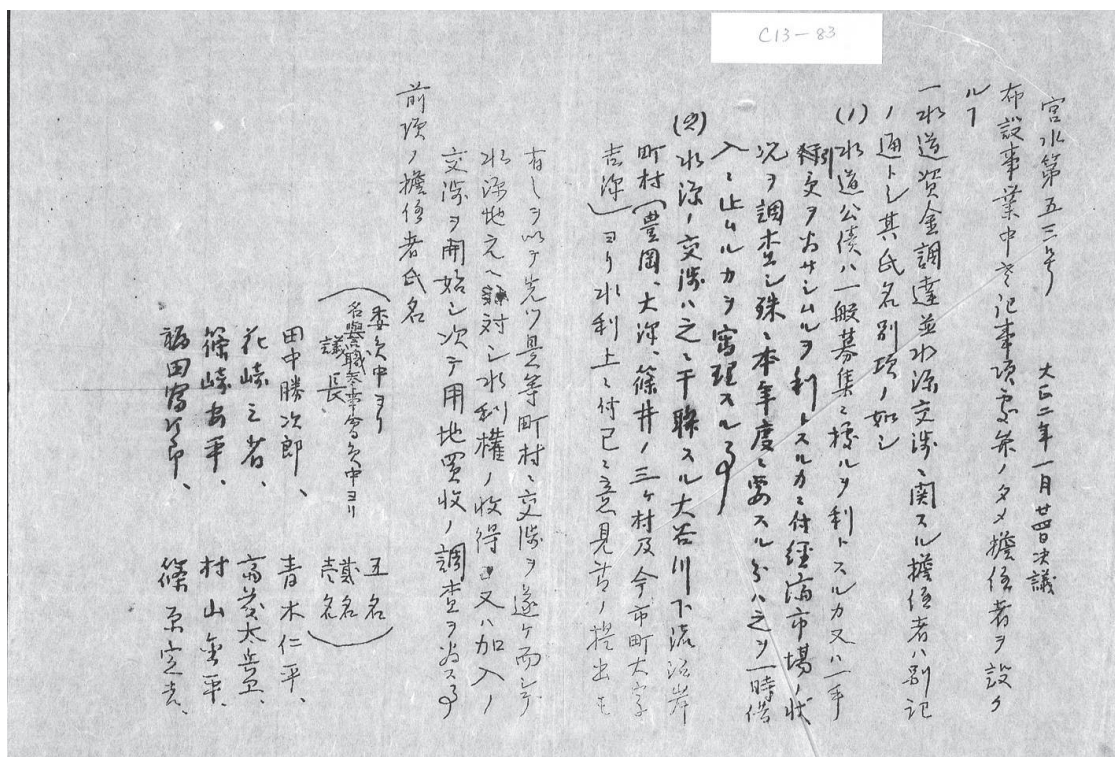 C13-83
宮水第五三号　大正二年一月廿四日決議
布設事業中左記事項処弁ノタメ擔任者ヲ設ク
ルヿ
一水道資金調達並水源交渉ニ関スル擔任者ハ別記
ノ通トシ其氏名別項ノ如シ
(1)水道公債ハ一般募集ニ據ルヲ利トスルカ又ハ一手
引受ヲナサシムルヲ利トスルカニ付経済市場ノ状
況ヲ調査シ殊ニ本年度ニ要スル分ハ之ヲ一時借
入ニ止ムルカヲ審理スル事
(2)水源ノ交渉ハ之ニ干聯スル大谷川下流沿岸
町村(豊岡、大沢、篠井ノ三ヶ村及今市町大字
吉沢)ヨリ水利上ニ付已ニ意見書ノ提出モ
有シヲ以テ先ツ是等町村ニ交渉ヲ遂ケ而シテ
水源地元ヘ対シ水利権ノ収得又ハ加入ノ
交渉ヲ開始シ次テ用地買収ノ調査ヲ為ス事
前項ノ擔任者氏名
(委員中ヨリ　五名
名誉職参事会員中ヨリ　貳名
議長　壱名)
田中勝次郎、　青木仁平、
花崎之省、　高茂太兵卫、
篠崎安平、　村山金平、
福田富次郎、　篠原定吉、